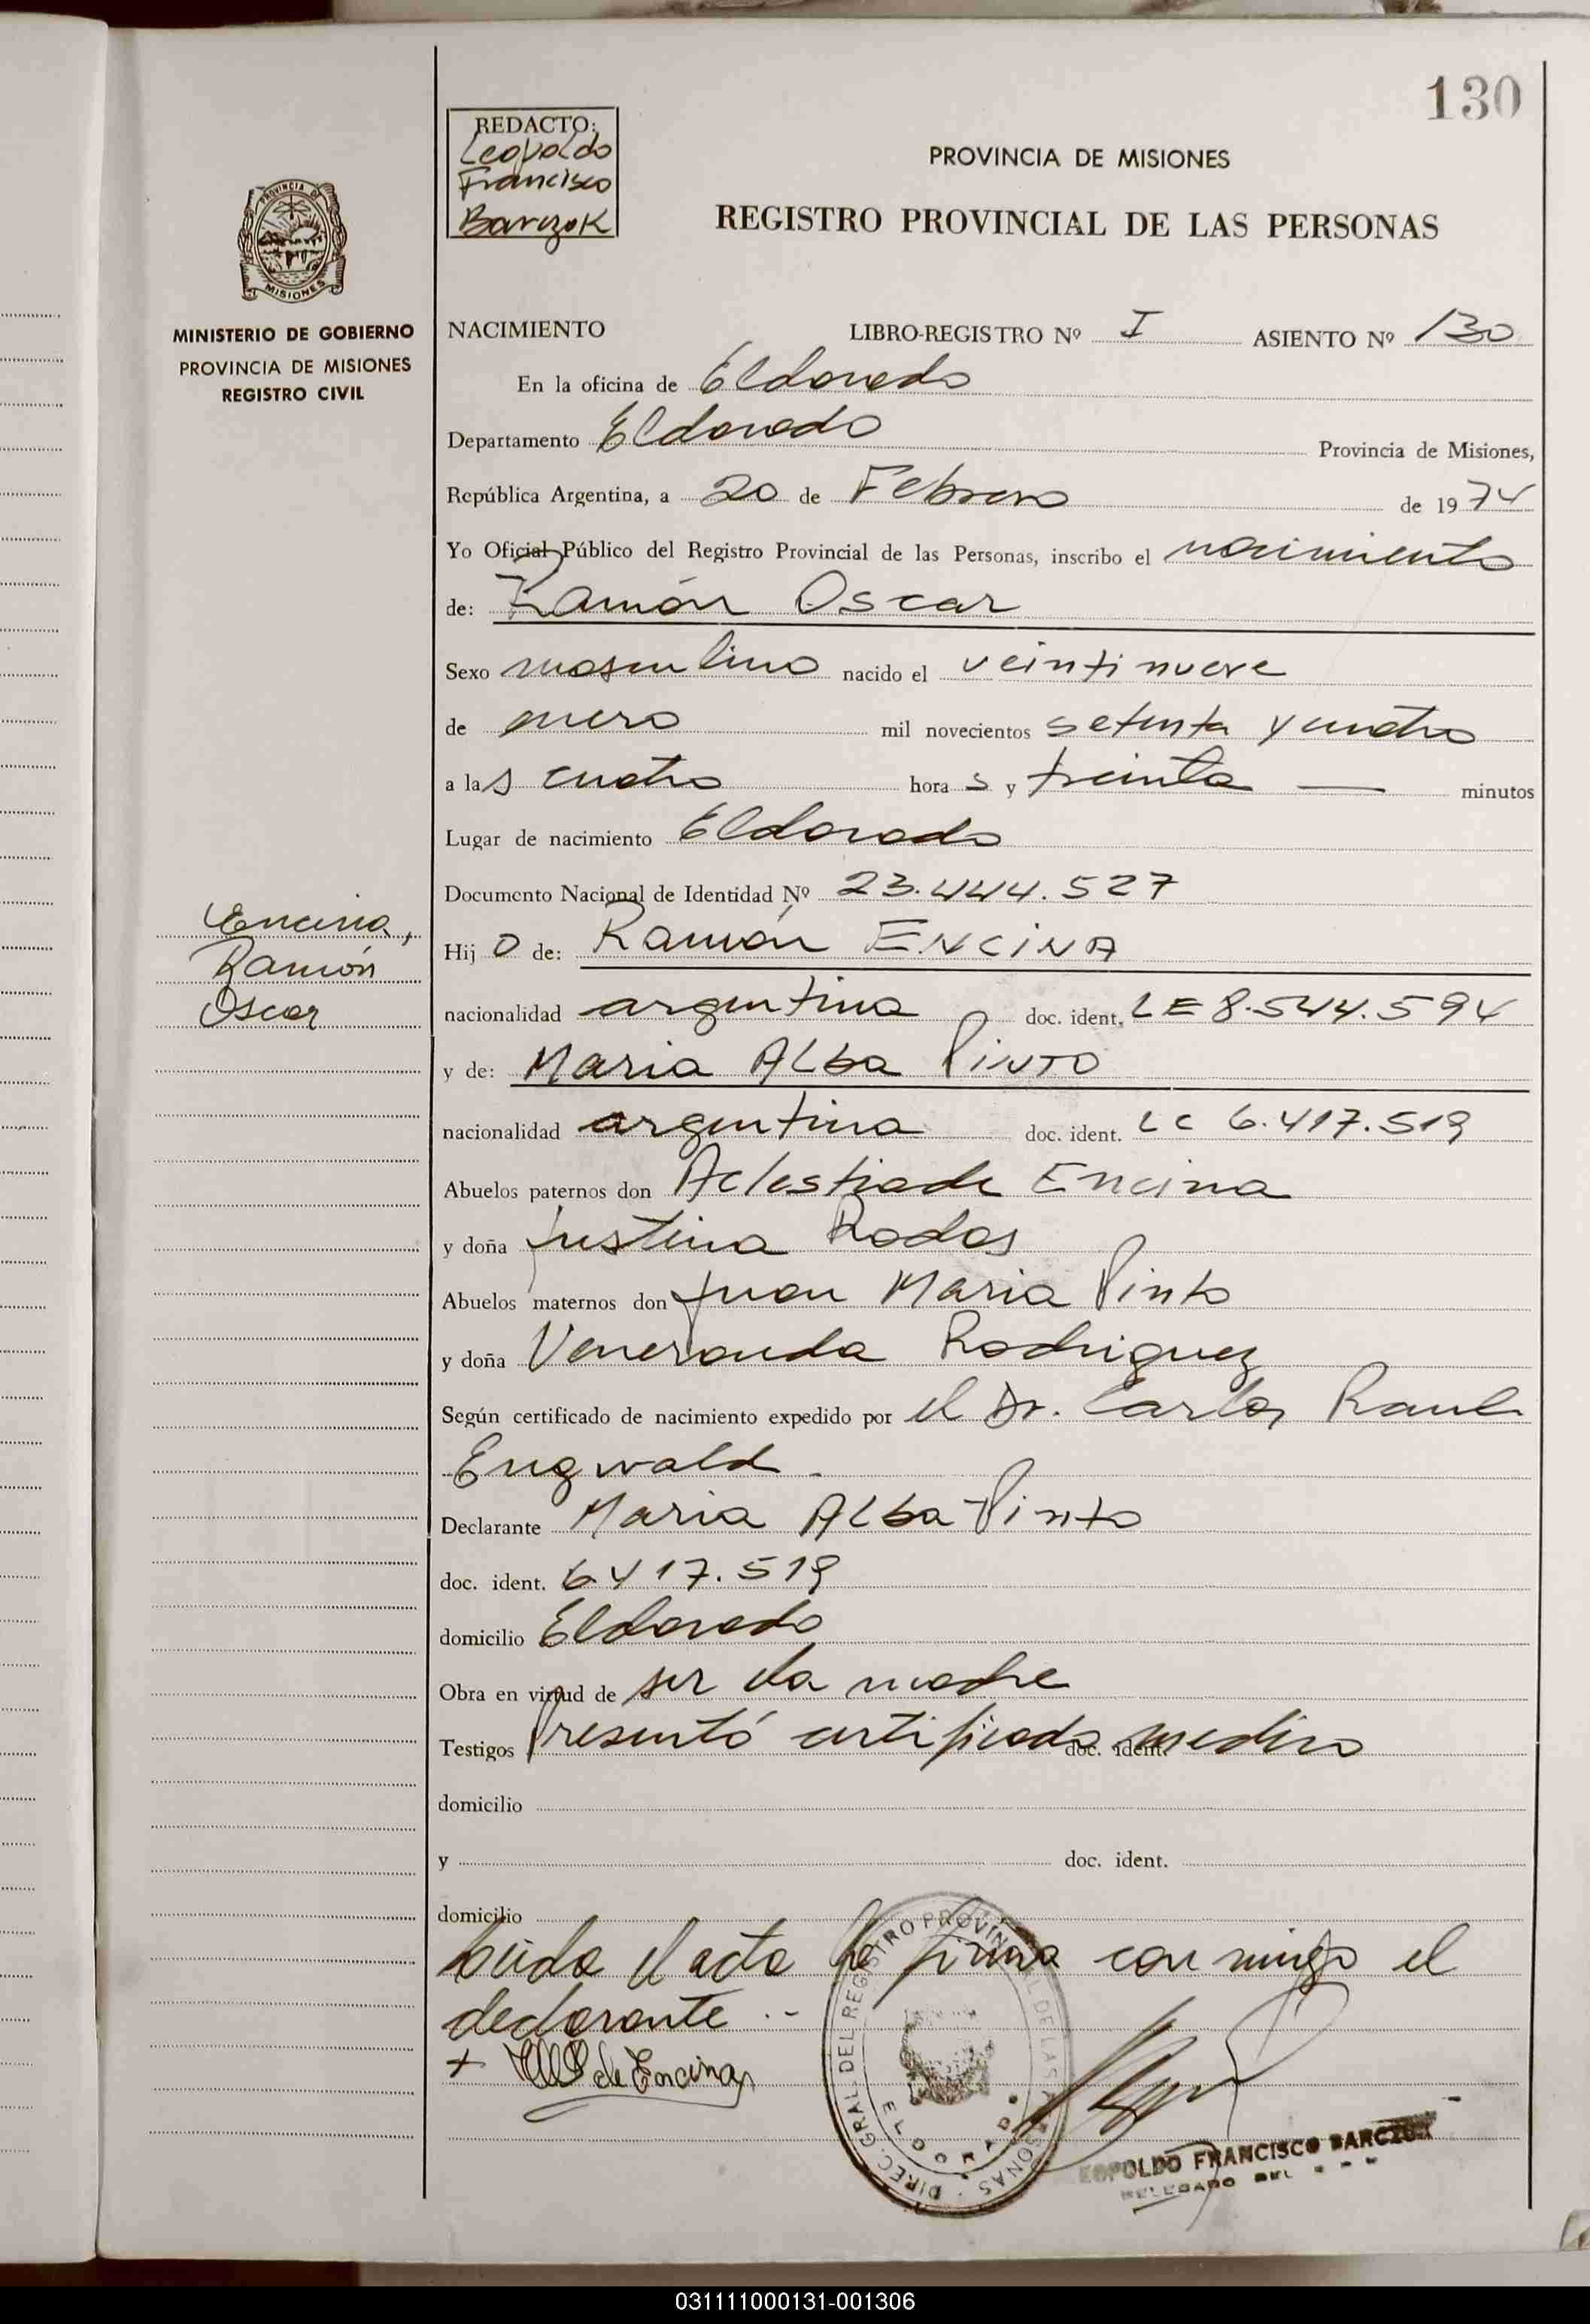 130
REDACTO:
Leopoldo
Francisco
Barczok
PROVINCIA DE MISIONES
REGISTRO PROVINCIAL DE LAS PERSONAS
PROVINCIA DE
MISIONES
MINISTERIO DE GOBIERNO
PROVINCIA DE MISIONES
REGISTRO CIVIL
NACIMIENTO LIBRO-REGISTRO Nº I ASIENTO Nº 130
En la oficina de Eldorado
Departamento Eldorado Provincia de Misiones,
República Argentina, a 20 de Febrero de 1974
Yo Oficial Público del Registro Provincial de las Personas, inscribo el nacimiento
de: Ramón Oscar
Sexo masculino nacido el veintinueve
de enero mil novecientos setenta y cuatro
a las cuatro horas y treinta — minutos
Lugar de nacimiento Eldorado
Documento Nacional de Identidad Nº 23.444.527
Encina,
Ramón
Oscar
Hijo de: Ramón ENCINA
nacionalidad argentina doc. ident. LE 8.544.594
y de: Maria Alba Pinto
nacionalidad argentina doc. ident. LC 6.417.519
Abuelos paternos don Aclestiade Encina
y doña Justina Rodas
Abuelos maternos don Juan Maria Pinto
y doña Veneranda Rodriguez
Según certificado de nacimiento expedido por el Dr. Carlos Raul
Engwald.
Declarante Maria Alba Pinto
doc. ident. 6.417.519
domicilio Eldorado
Obra en virtud de ser la madre
Testigos Presentó certificado medico doc. ident.
domicilio
y doc. ident.
domicilio
Leida el acta la firma conmigo el
declarante .-
+ de Encina
DIREC. GRAL. DEL REGISTRO PROVINCIAL DE LAS PERSONAS
ELDORADO
LEOPOLDO FRANCISCO BARCZOK
DELEGADO DEL
031111000131-001306